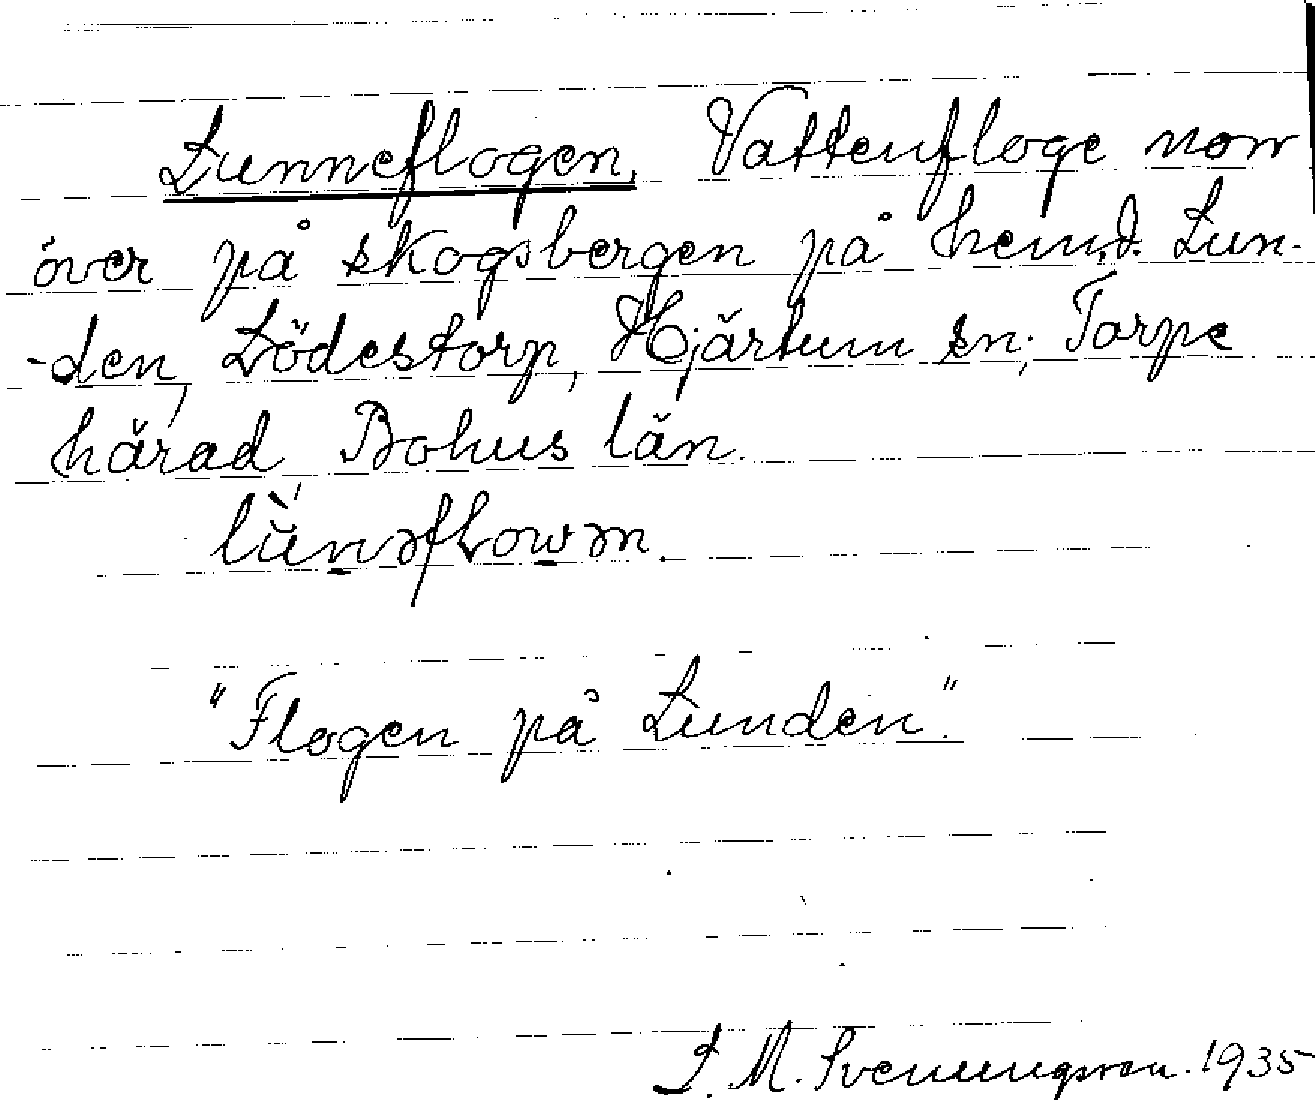 Lunneflogen, Vattenfloge norr
över på skogsbergen på hemd. Lun-
-den, Lödestorp, Hjärtum sn; Torpe
härad, Bohus län.
lùnəfʟowən.
"Flogen på Lunden."
S. M. Svenungsson. 1935